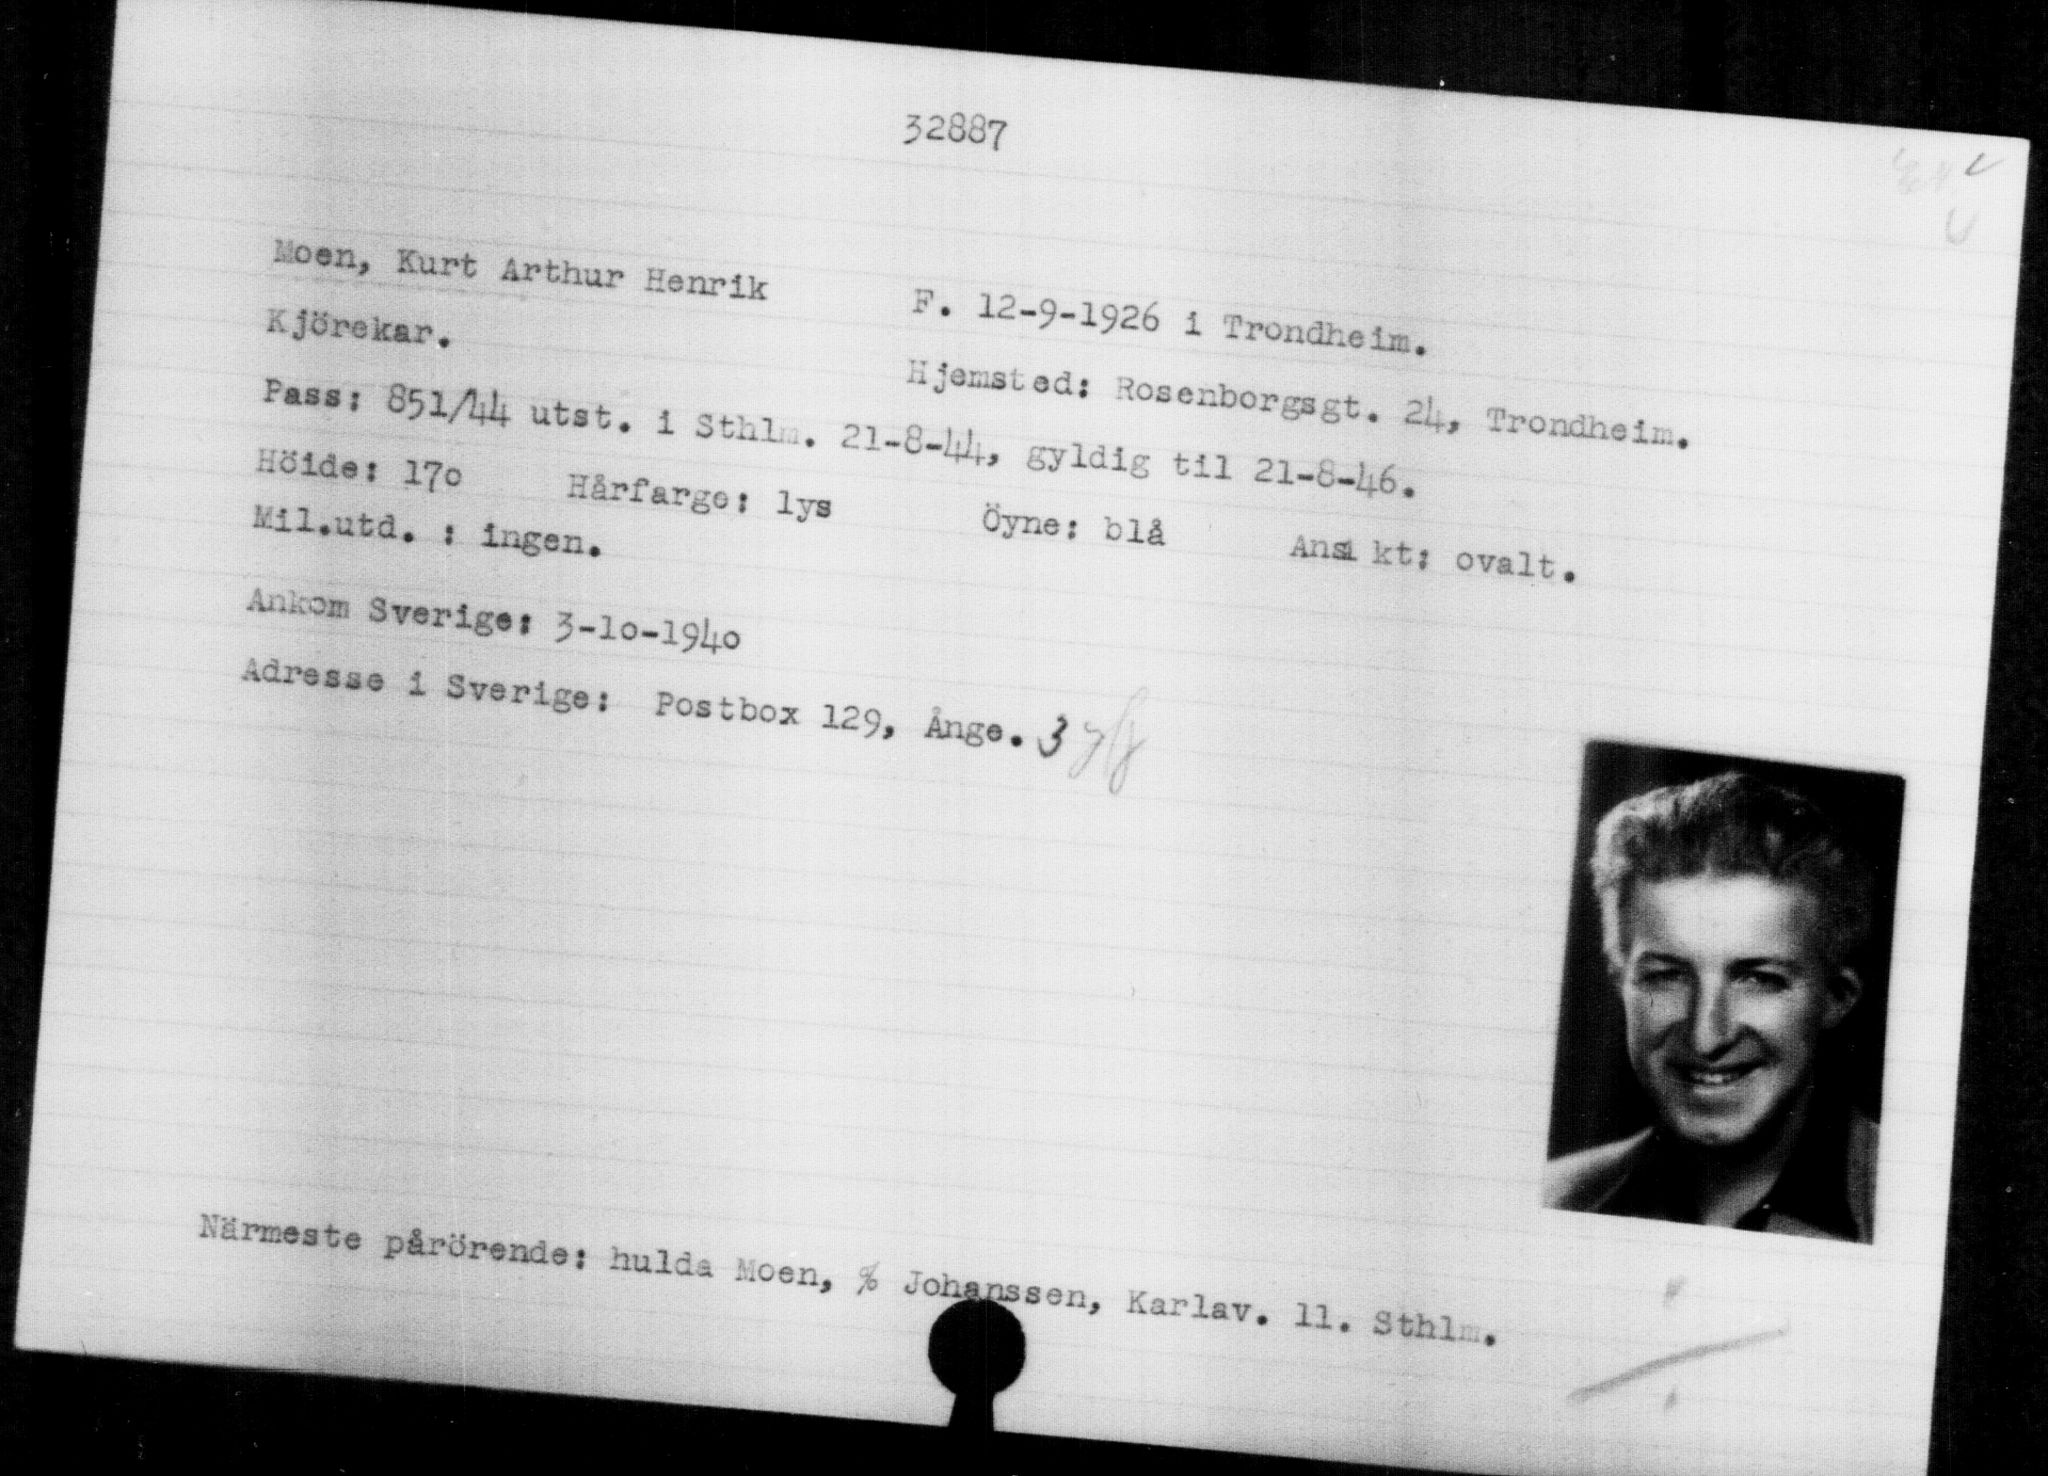 32887
Moen, Kurt Arthur Henrik F. 12-9-1926 i Trondheim.
Kjörekar. Hjemsted: Rosenborgsgt. 24, Trondheim.
Pass: 851/44 utst. i Sthlm. 21-8-44, gyldig til 21-8-46.
Höide: 17o Hårfarge: lys Öyne: blå Ansikt: ovalt.
Mil.utd. : ingen.
Ankom Sverige: 3-1o-194o
Adresse i Sverige: Postbox 129, Ånge. 3
Närmeste pårörende: hulda Moen, % Johanssen, Karlav. 11. Sthlm.